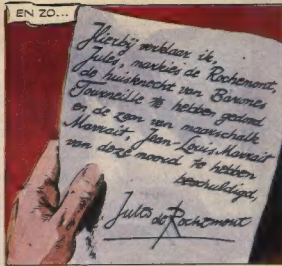 EN ZO...
Hierbij verklaar ik,
Jules, markies de Rochemont,
de huisknecht van Barones
Tourneille te hebben gedood
en de zoon van maarschalk
Marrait, Jean-Louis Marrait
van deze moord te hebben
beschuldigd,
Jules de Rochemont